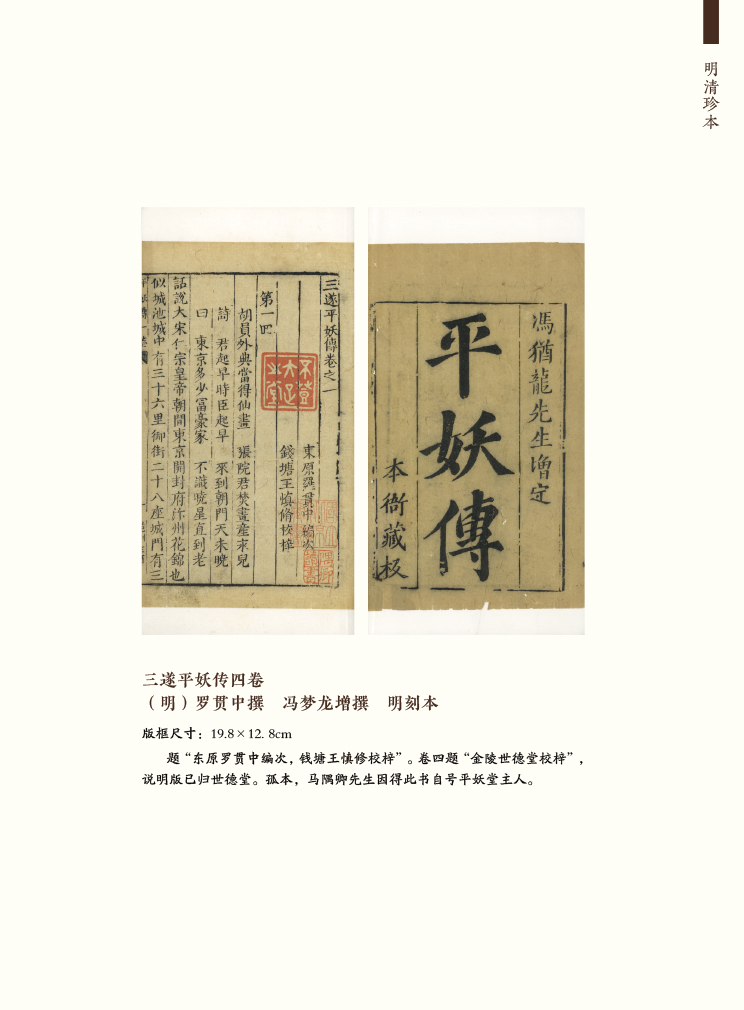 明清珍本
馮猶龍先生增定
平妖傳
本衙藏板
三遂平妖傳卷之一
東原羅貫中編次
錢塘王慎脩校梓
第一回
胡員外典當得仙畫　張院君焚畫產永兒
詩　君起早時臣起早　來到朝門天未曉
曰　東京多少富豪家　不識曉星直到老
話說大宋仁宗皇帝朝間東京開封府汴州花錦也
似城池城中有三十六里御街二十八座城門有三
不登
大足
之堂
三遂平妖传四卷
（明）罗贯中撰　冯梦龙增撰　明刻本
版框尺寸：19.8×12.8cm
题“东原罗贯中编次，钱塘王慎修校梓”。卷四题“金陵世德堂校梓”，
说明版已归世德堂。孤本，马隅卿先生因得此书自号平妖堂主人。